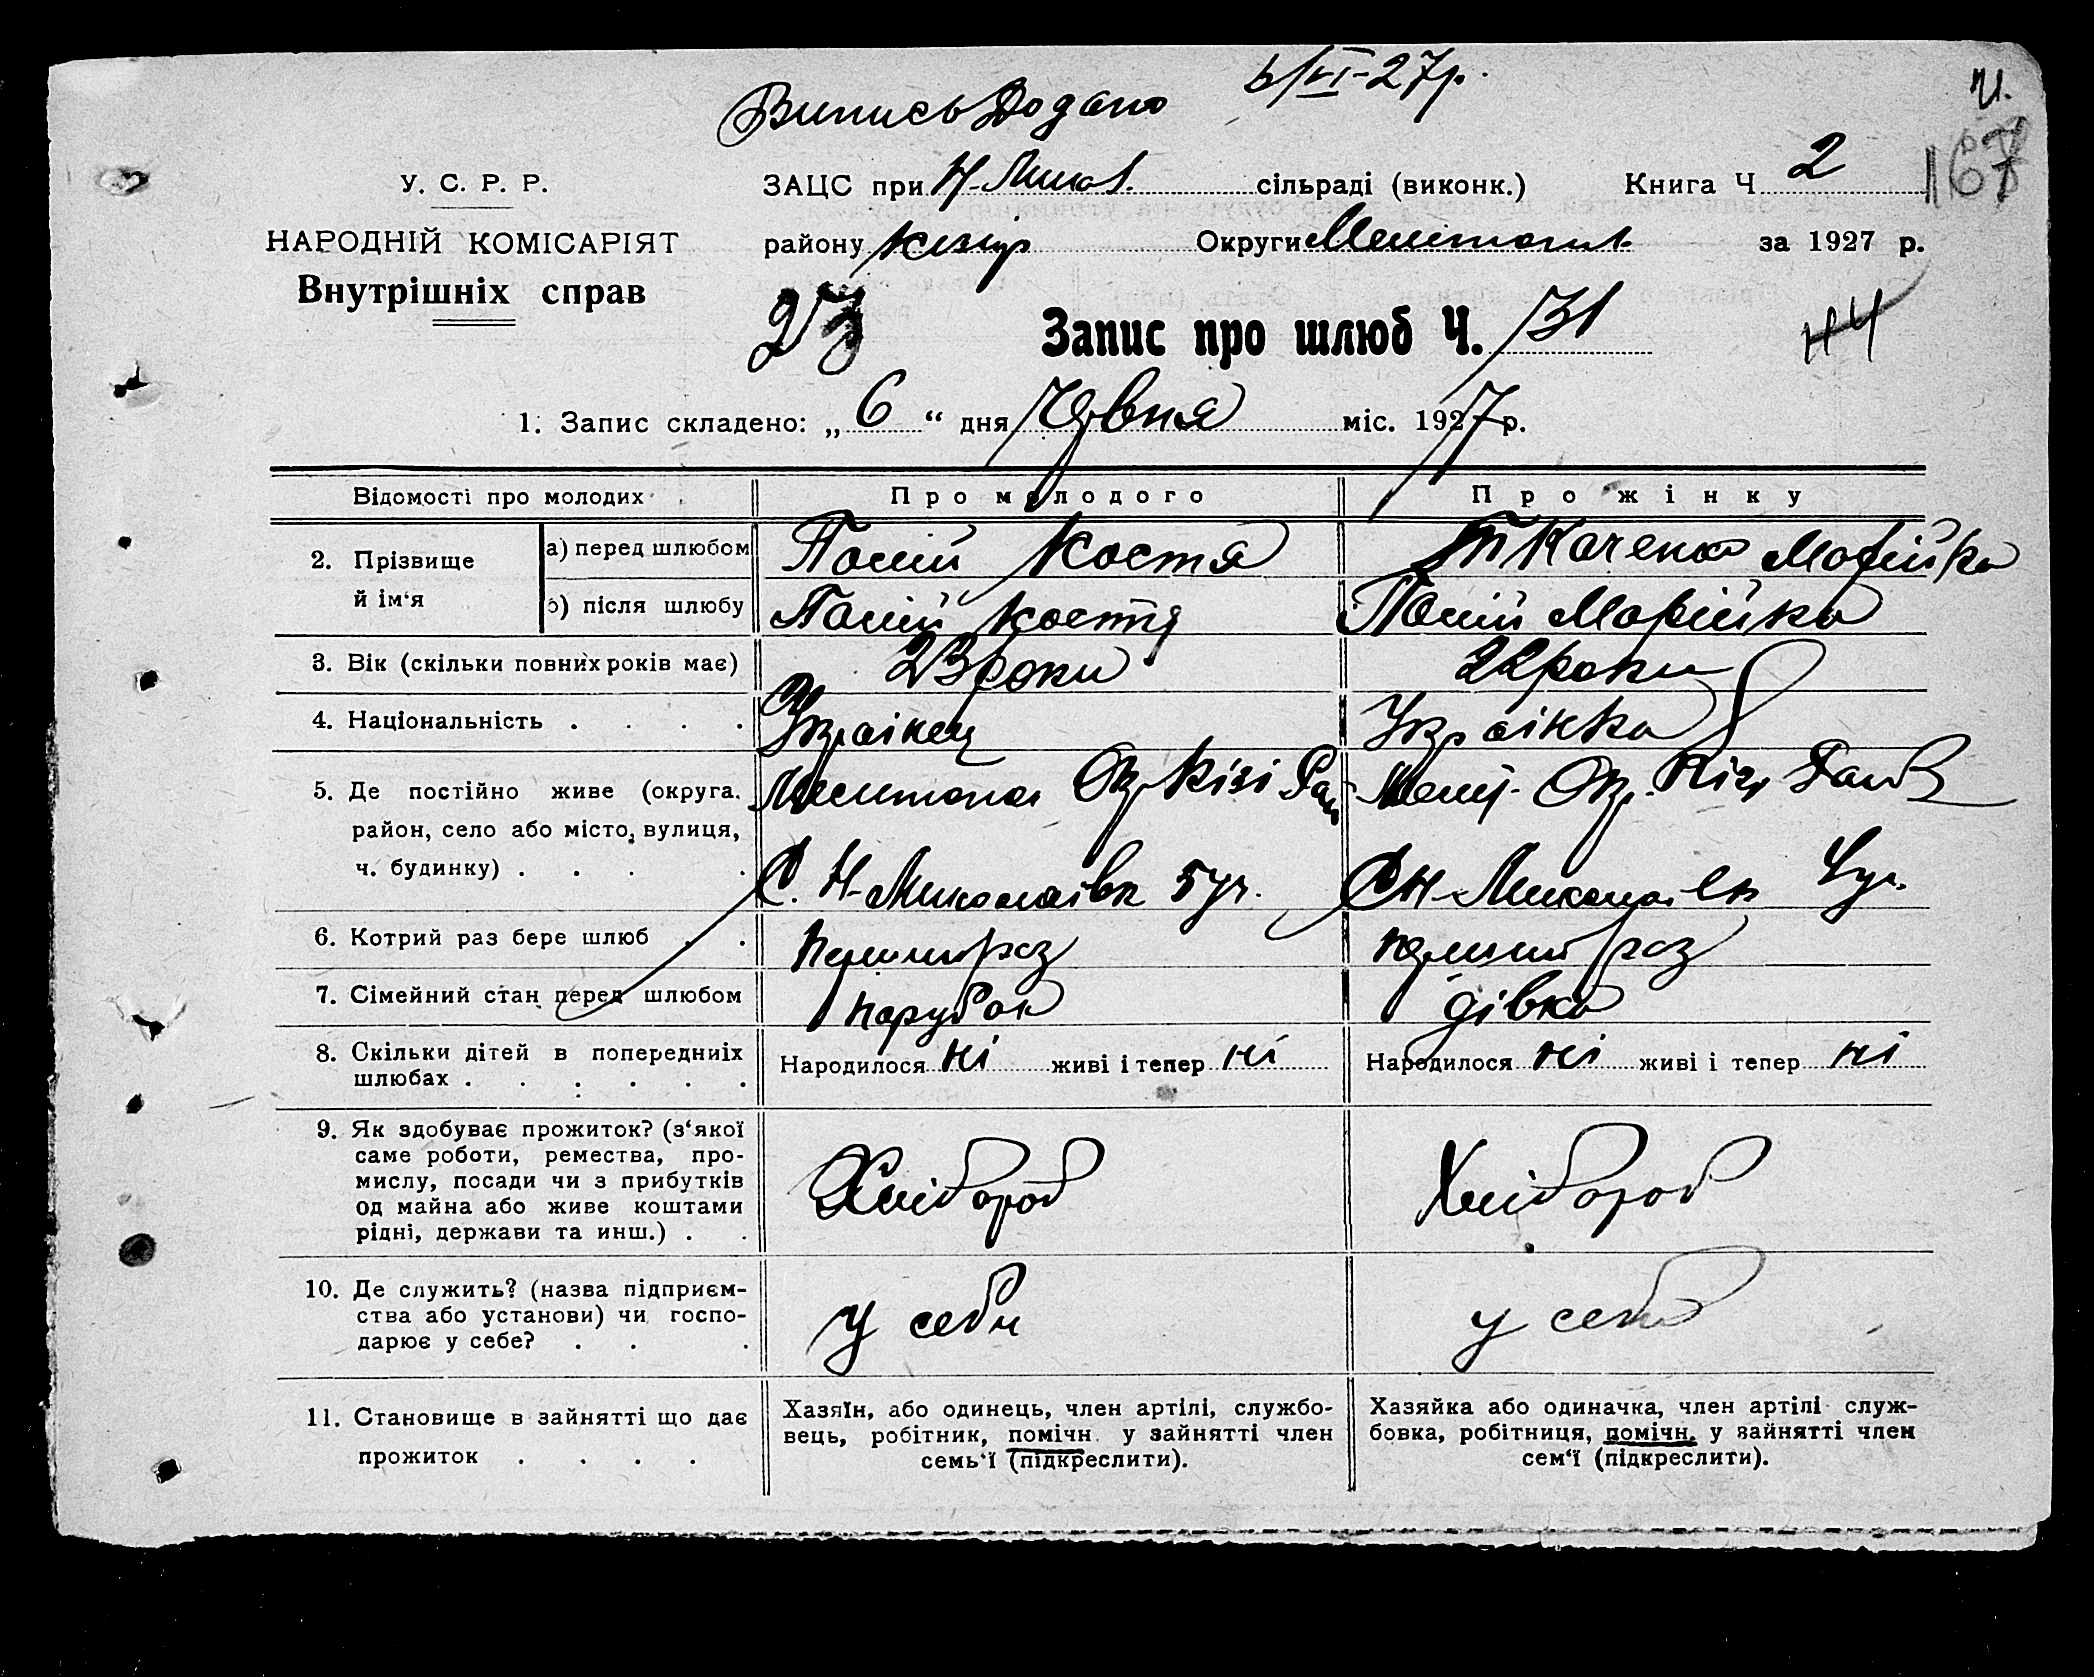 Випись Додано 6/VI-27р.
У. С. Р. Р.
ЗАЦС при Н-Микол. сільраді (виконк.) Книга Ч 2
НАРОДНІЙ КОМІСАРІЯТ
району Кізіяр Округи Мелітопол. за 1927 р.
Внутрішніх справ
23
Запис про шлюб Ч. 31
44
1. Запис складено: „ 6 “ дня Червня міс. 1927 р.
Відомості про молодих Про молодого Про жінку
2. Прізвище й ім‘я
а) перед шлюбом Палій Костя Ткаченко Марійка
б) після шлюбу Палій Костя Палій Марійка
3. Вік (скільки повних років має) 23 роки 22 роки
4. Національність . . . . Українец Українка
5. Де постійно живе (округа, Мелитопол Окр Кізі Рай Меліт. Окр. Кізі Район
район, село або місто, вулиця,
ч. будинку) . . . . С. Н-Миколаівк 5 уч. С Н-Миколаівк уч.
6. Котрий раз бере шлюб . . перший раз перший раз
7. Сімейний стан перед шлюбом парубок дівка
8. Скільки дітей в попередниіх
шлюбах . . . . . . Народилося ні живі і тепер ні Народилося ні живі і тепер ні
9. Як здобуває прожиток? (з‘якої
саме роботи, ремества, про-
мислу, посади чи з прибутків
од майна або живе коштами
рідні, держави та инш.) . .
Хлібороб Хлібороб
10. Де служить? (назва підприєм-
ства або установи) чи госпо-
дарює у себе? . . .
у себи у себе
11. Становище в зайнятті що дає
прожиток . . . .
Хазяїн, або одинець, член артілі, службо-
вець, робітник, помічн. у зайнятті член
семь‘ї (підкреслити).
Хазяйка або одиначка, член артілі служ-
бовка, робітниця, помічн. у зайнятті член
сем‘ї (підкреслити).